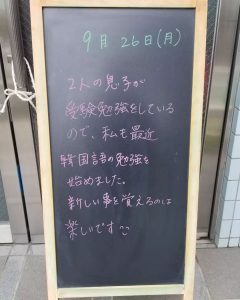 9月 26日(月)
2人の息子が
受験勉強をしている
ので、私も最近
韓国語の勉強を
始めました。
新しい事を覚えるのは
楽しいです